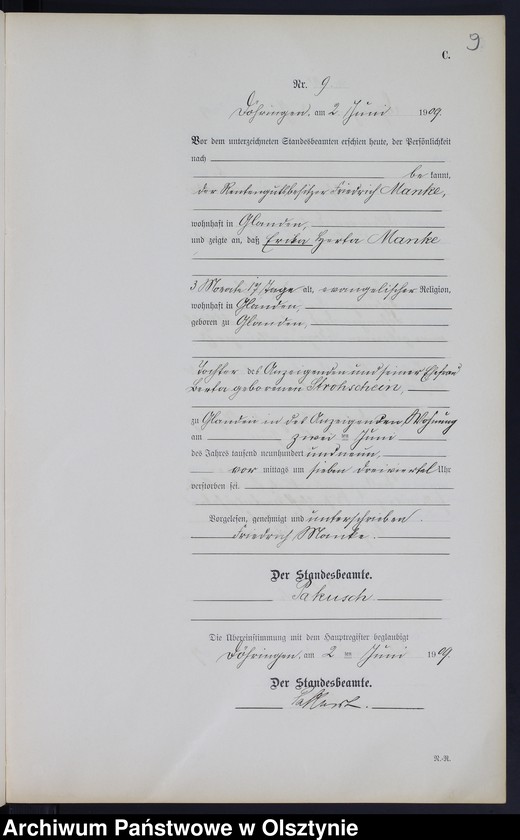 9
C.
Nr. 9
Döhringen, am 2 Juni 1909.
Vor dem unterzeichneten Standesbeamten erschien heute, der Persönlichkeit
nach
be kannt,
der Rentengutsbesitzer Friedrich Manke,
wohnhaft in Glanden,
und zeigte an, daß Erika Herta Manke
3 Monate 17 Tage alt, evangelischer Religion,
wohnhaft in Glanden,
geboren zu Glanden,
Tochter des Anzeigenden und seiner Ehefrau
Berta geborenen Strohschein,
zu Glanden in des Anzeigenden Wohnung
am zwei ten Juni
des Jahres tausend neunhundert und neun,
vor mittags um sieben dreiviertel Uhr
verstorben sei.
Vorgelesen, genehmigt und unterschrieben.
Friedrich Manke.
Der Standesbeamte.
Pakusch
Die Übereinstimmung mit dem Hauptregister beglaubigt
Döhringen, am 2 ten Juni 1909.
Der Standesbeamte.
N.-R.
Archiwum Państwowe w Olsztynie